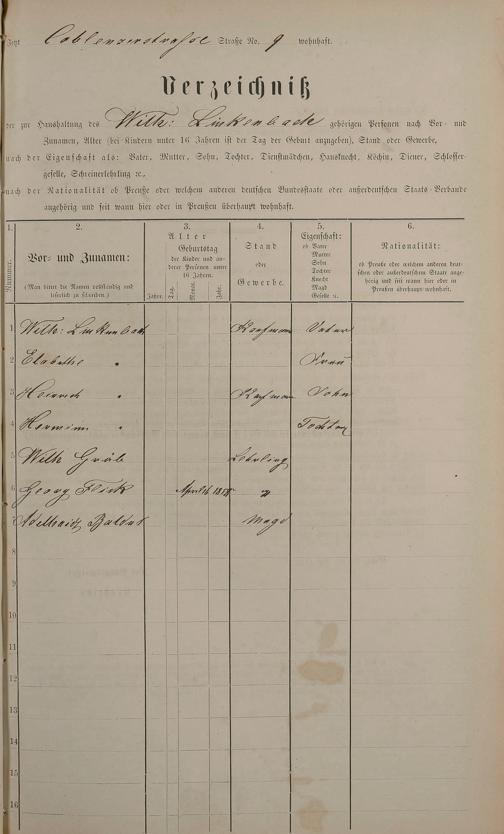 Jetzt Coblenzerstraße Straße No. 9 wohnhaft.
Verzeichniß
der zur Haushaltung des Wilh: Linkenbach gehörigen Personen nach Vor- und
Zunamen, Alter (bei Kindern unter 16 Jahren ist der Tag der Geburt anzugeben), Stand oder Gewerbe,
nach der Eigenschaft als: Vater, Mutter, Sohn, Tochter, Dienstmädchen, Hausknecht, Köchin, Diener, Schlosser-
geselle, Schreinerlehrling ꝛc.,
nach der Nationalität ob Preuße oder welchem anderen deutschen Bundesstaate oder außerdeutschen Staats-Verbande
angehörig und seit wann hier oder in Preußen überhaupt wohnhaft.
1. 2. 3. 4. 5. 6.
Nummer.
Vor- und Zunamen:
(Man bittet die Namen vollständig und
leserlich zu schreiben.)
Alter
Geburtstag
der Kinder und an-
derer Personen unter
16 Jahren.
Jahre. Tag. Monat. Jahr.
Stand
oder
Gewerbe.
Eigenschaft:
ob Vater
Mutter
Sohn
Tochter
Knecht
Magd
Geselle ꝛc.
Nationalität:
ob Preuße oder welchem anderen deut-
schen oder außerdeutschen Staate ange-
hörig und seit wann hier oder in
Preußen überhaupt wohnhaft.
1 Wilh: Linkenbach Kaufmann Vater
2 Elabethe " Frau
3 Heinrich " Kaufmann Sohn
4 Hermine " Tochter
5 Wilh Gräb Lehrling
6 Georg Flick April 16 1858 "
7 Adelhaid Baldus Magd
8
9
10
11
12
13
14
15
16